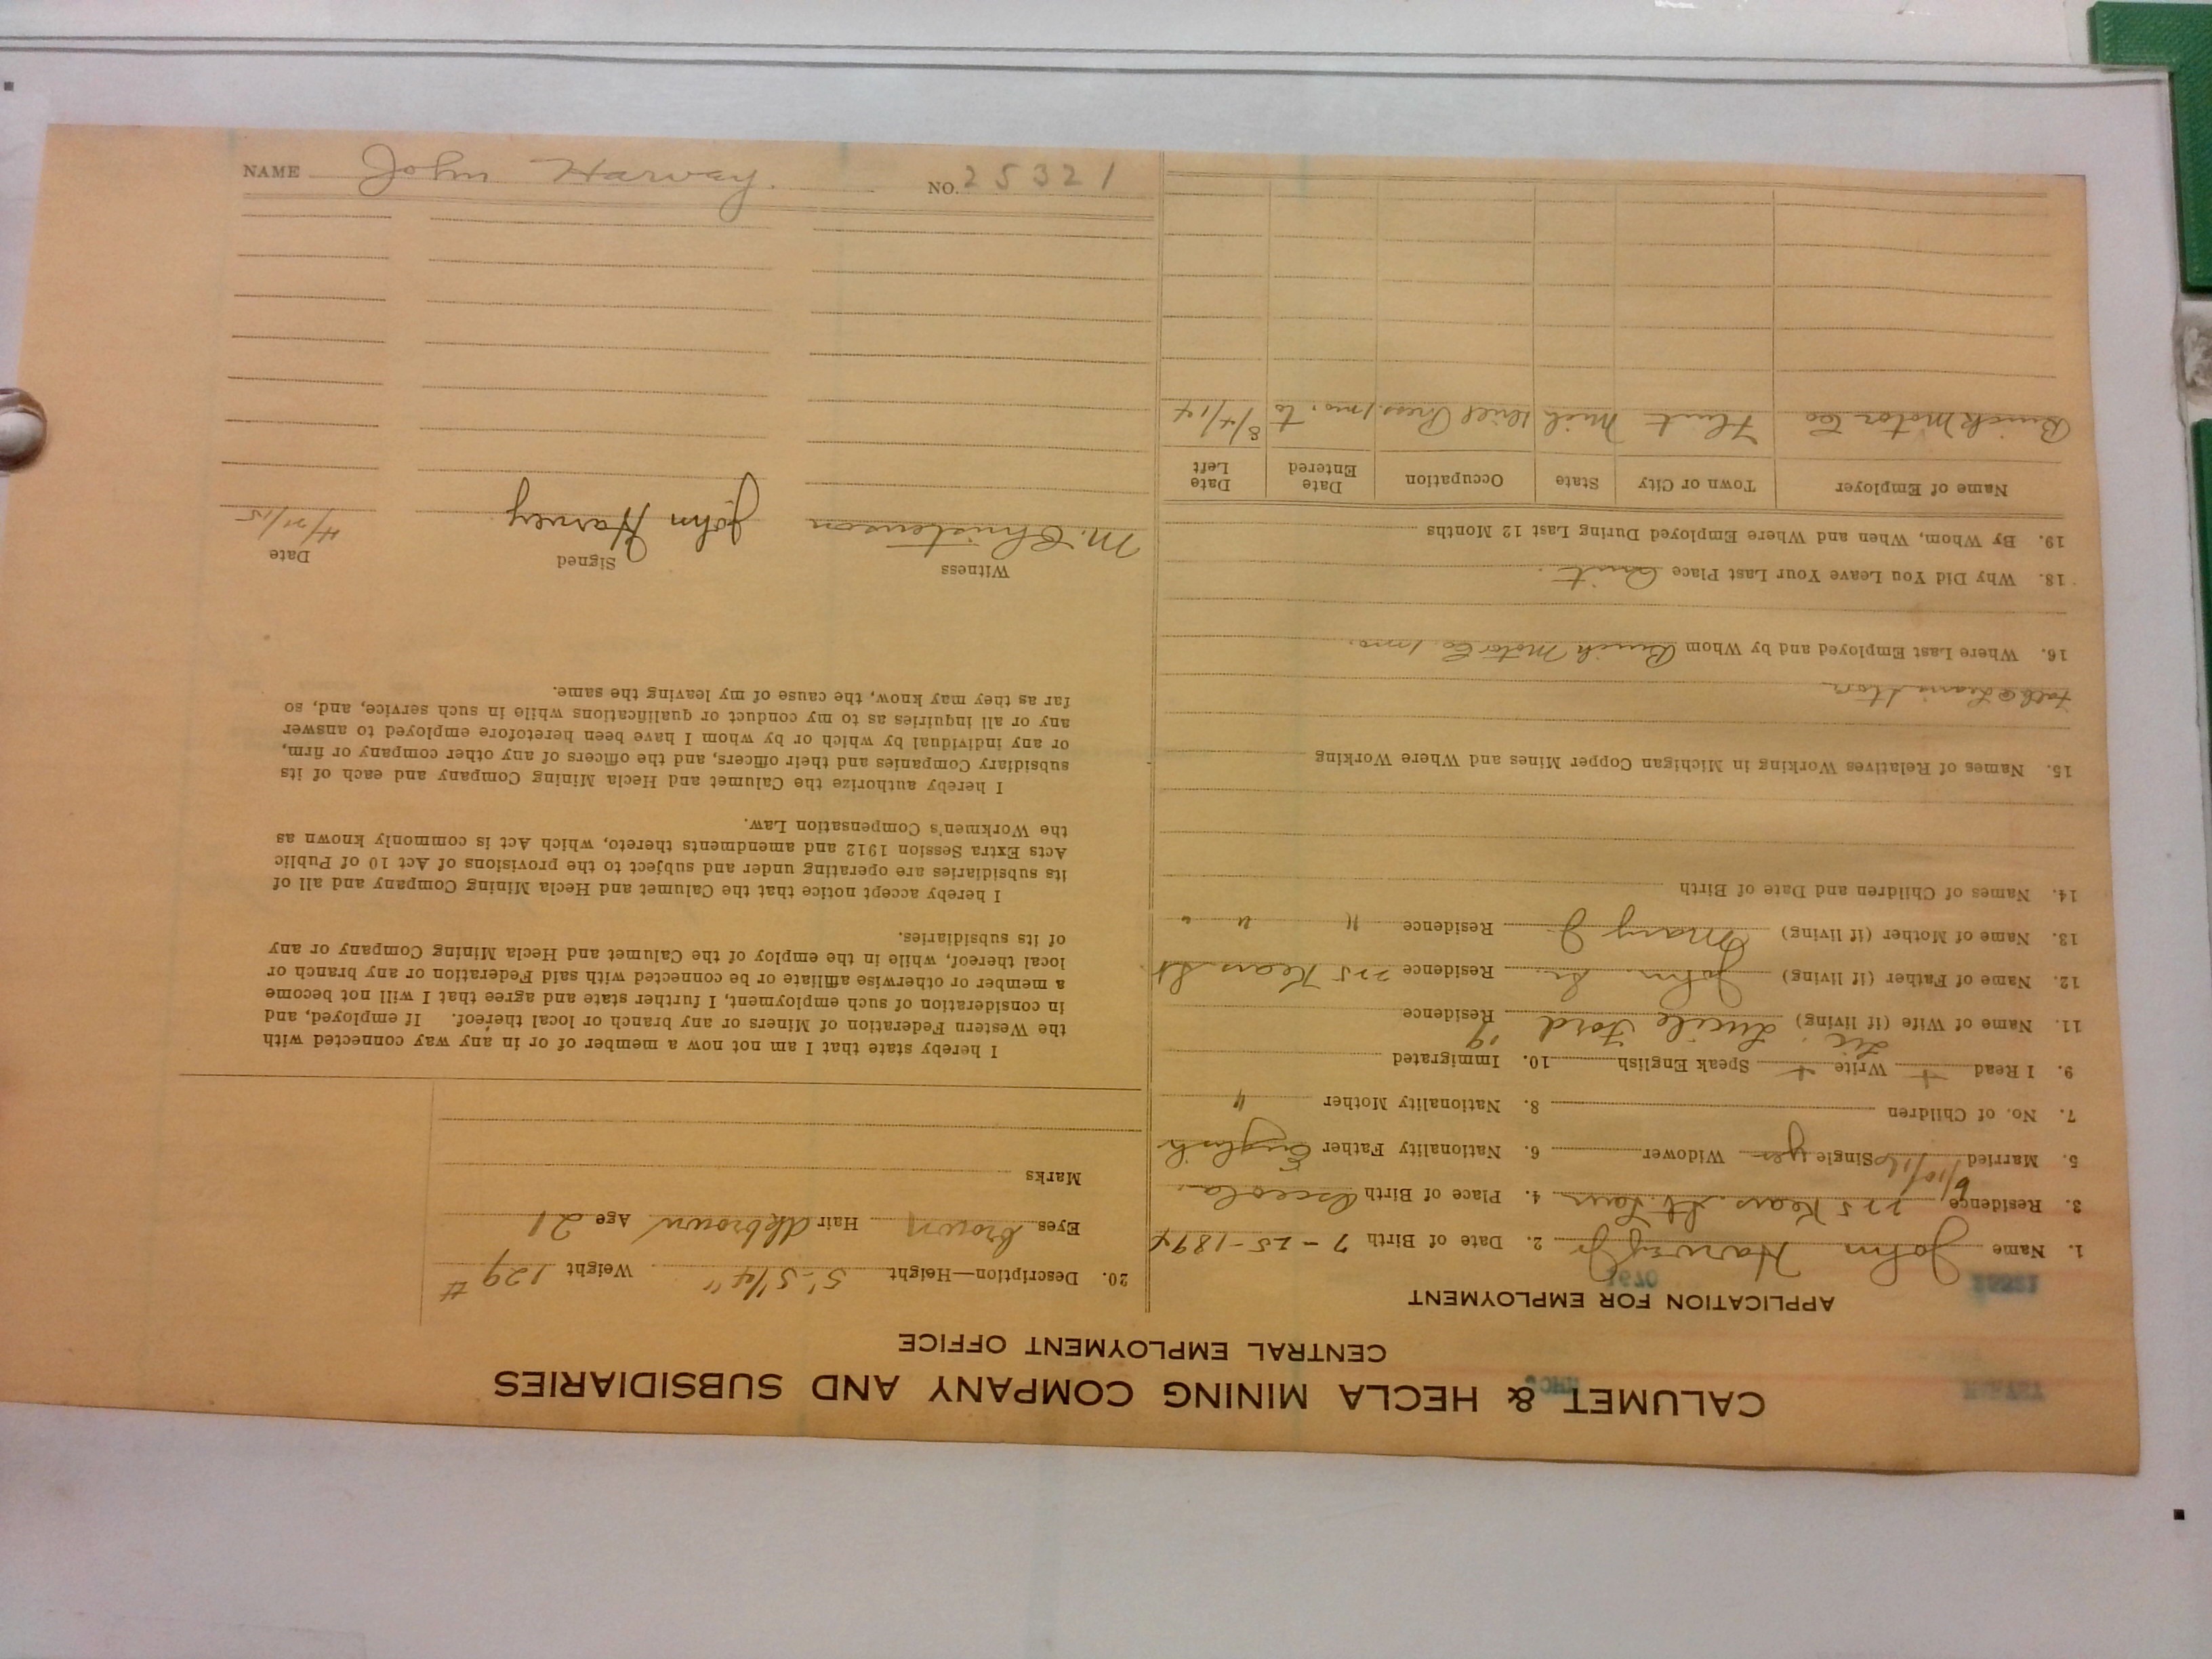 CALUMET & HECLA MINING COMPANY AND SUBSIDIARIES
CENTRAL EMPLOYMENT OFFICE
APPLICATION FOR EMPLOYMENT
1. Name John Harvey Jr 2. Date of Birth 7-25-1894
3. Residence 225 Kears. St. Laur. 4. Place of Birth Osceola.
5. Married 6/10/16 Single yes Widower 6. Nationality Father English
7. No. of Children 8. Nationality Mother "
9. I Read + Write + Speak English 10. Immigrated 19
11. Name of Wife (if living) Lucile Ford Residence
12. Name of Father (if living) John Sr. Residence 225 Kears St
13. Name of Mother (if living) Mary J Residence " " "
14. Names of Children and Date of Birth
15. Names of Relatives Working in Michigan Copper Mines and Where Working
16. Where Last Employed and by Whom Buick Motor Co. 1 mo.
18. Why Did You Leave Your Last Place Quit.
19. By Whom, When and Where Employed During Last 12 Months
Name of Employer Town or City State Occupation Date Entered Date Left
Buick Motor Co Flint Mich Drill Press 1 mo. to 8/4/14
20. Description—Height 5'-5 1/4" Weight 129 #
Eyes brown Hair dk brown Age 21
Marks
I hereby state that I am not now a member of or in any way connected with
the Western Federation of Miners or any branch or local thereof. If employed, and
in consideration of such employment, I further state and agree that I will not become
a member or otherwise affiliate or be connected with said Federation or any branch or
local thereof, while in the employ of the Calumet and Hecla Mining Company or any
of its subsidiaries.
I hereby accept notice that the Calumet and Hecla Mining Company and all of
its subsidiaries are operating under and subject to the provisions of Act 10 of Public
Acts Extra Session 1912 and amendments thereto, which Act is commonly known as
the Workmen's Compensation Law.
I hereby authorize the Calumet and Hecla Mining Company and each of its
subsidiary Companies and their officers, and the officers of any other company or firm,
or any individual by which or by whom I have been heretofore employed to answer
any or all inquiries as to my conduct or qualifications while in such service, and, so
far as they may know, the cause of my leaving the same.
Witness Signed Date
M. Christenson John Harvey 4/21/15
NAME John Harvey. NO. 25321